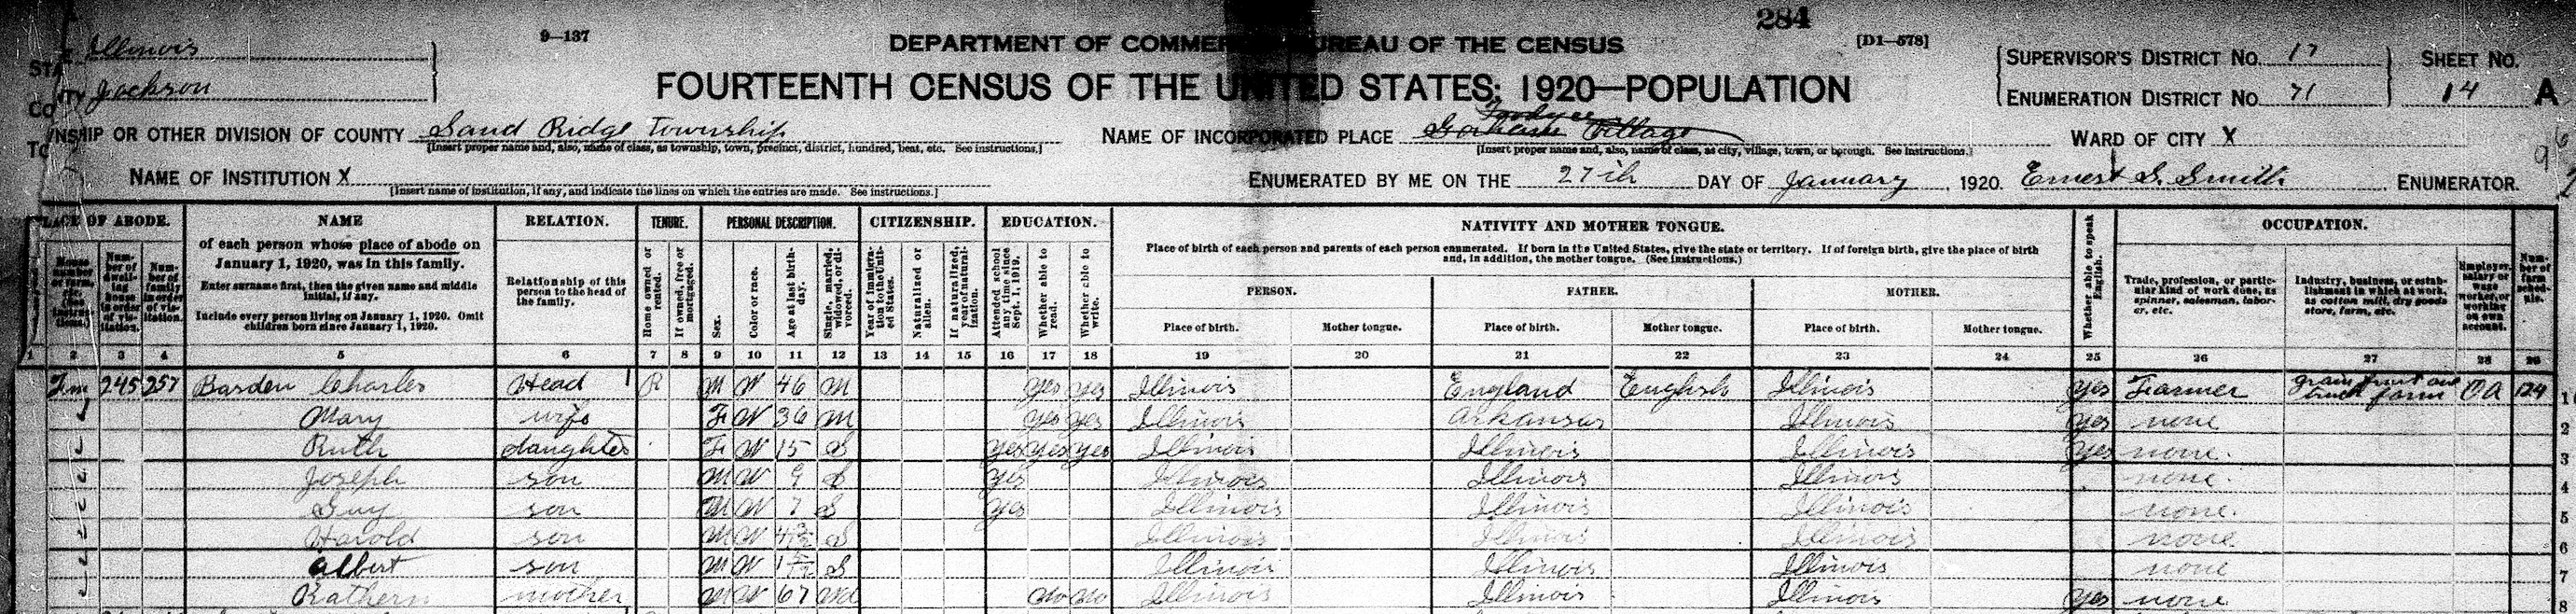 284
9—137
DEPARTMENT OF COMMERCE BUREAU OF THE CENSUS
[D1—578]
STATE Illinois
COUNTY Jackson
FOURTEENTH CENSUS OF THE UNITED STATES: 1920—POPULATION
SUPERVISOR'S DISTRICT NO. 17
SHEET NO.
ENUMERATION DISTRICT NO. 71
14 A
TOWNSHIP OR OTHER DIVISION OF COUNTY Sand Ridge Township
[Insert proper name and, also, name of class, as township, town, precinct, district, hundred, beat, etc. See instructions.]
NAME OF INCORPORATED PLACE Gorham Village
[Insert proper name and, also, name of class, as city, village, town, or borough. See instructions.]
WARD OF CITY X
NAME OF INSTITUTION X
[Insert name of institution, if any, and indicate the lines on which the entries are made. See instructions.]
ENUMERATED BY ME ON THE 27th DAY OF January, 1920. Ernest S. Smith ENUMERATOR.
PLACE OF ABODE. NAME RELATION. TENURE. PERSONAL DESCRIPTION. CITIZENSHIP. EDUCATION. NATIVITY AND MOTHER TONGUE. Whether able to speak English. OCCUPATION.
House number or farm, etc. (See instructions.)
Number of dwelling house in order of visitation.
Number of family in order of visitation.
of each person whose place of abode on
January 1, 1920, was in this family.
Enter surname first, then the given name and middle
initial, if any.
Include every person living on January 1, 1920. Omit
children born since January 1, 1920.
Relationship of this
person to the head of
the family.
Home owned or rented.
If owned, free or mortgaged.
Sex.
Color or race.
Age at last birthday.
Single, married, widowed, or divorced.
Year of immigration to the United States.
Naturalized or alien.
If naturalized, year of naturalization.
Attended school any time since Sept. 1, 1919.
Whether able to read.
Whether able to write.
Place of birth of each person and parents of each person enumerated. If born in the United States, give the state or territory. If of foreign birth, give the place of birth
and, in addition, the mother tongue. (See instructions.)
PERSON. FATHER. MOTHER.
Place of birth. Mother tongue. Place of birth. Mother tongue. Place of birth. Mother tongue.
Trade, profession, or particular kind of work done, as spinner, salesman, laborer, etc.
Industry, business, or establishment in which at work, as cotton mill, dry goods store, farm, etc.
Employer, salary or wage worker, or working on own account.
Number of farm schedule.
1 2 3 4 5 6 7 8 9 10 11 12 13 14 15 16 17 18 19 20 21 22 23 24 25 26 27 28 29
Fm 245 257 Barden Charles Head 1 R M W 46 M yes yes Illinois England English Illinois yes Farmer grain fruit truck farm OA 124 1
Mary wife F W 36 M yes yes Illinois Arkansas Illinois yes none 2
Ruth daughter F W 15 S yes yes yes Illinois Illinois Illinois yes none 3
Joseph son M W 9 S yes Illinois Illinois Illinois none 4
Guy son M W 7 S yes Illinois Illinois Illinois none 5
Harold son M W S Illinois Illinois Illinois none 6
Albert son M W S Illinois Illinois Illinois none 7
Kathern mother W 67 Wd no no Illinois Illinois Illinois yes none